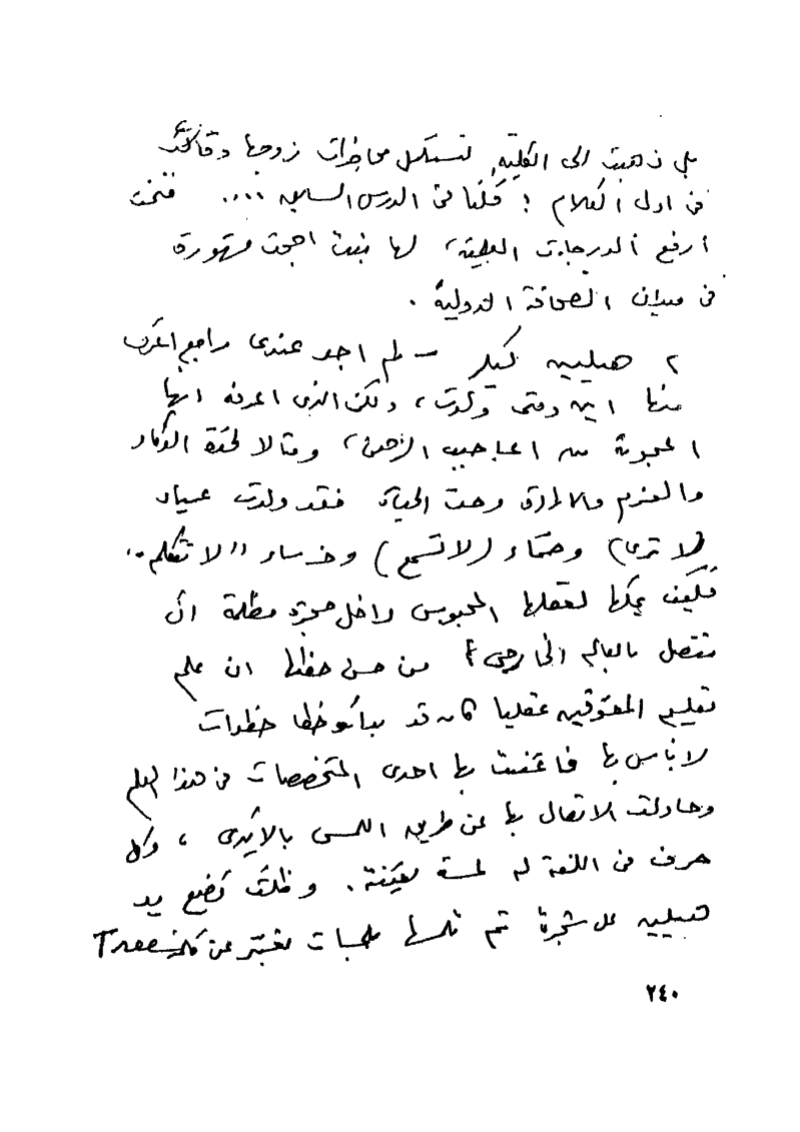 بل ذهبت الى الكلية, لتستكمل محاضرات زوجها وقالت
فى اول الكلام : قلنا فى الدرس السابق .... فتحت
أرفع الدرجات العلمية، لها بنت اصبحت مشهورة
فى ميدان الصحافة الدولية .
٢ هيلين كيلر – لم اجد عندى مراجع اعرف
منها اين ومتى ولدت، ولكن الذى اعرفه انها
اعجوبة من اعاجيب الزمن، ومثالا لقوة الذكاء
والعزم والارادة وحب الحياة فقد ولدت عمياء
(لا ترى) وصمّاء (لا تسمع) وخرساء "لا تتكلم"
فكيف يمكن لعقلها المحبوس داخل حجرة مظلمة أن
تتصل بالعالم الخارجى ؟ من حسن حظها ان علم
تعليم المعوّقين عقليا كان قد بدأ يخطو خطوات
لا بأس بها فاعتنت بها احدى المتخصصات فى هذا العلم
وحاولت الاتصال بها عن طريق اللمس بالأيدى ، وكل
حرف فى اللغة له لمسة معينة . وظلت تضع يد
هيلين على شجرة ثم تلمسها لمسات تعبّر عن كلمة Tree
٢٤٠